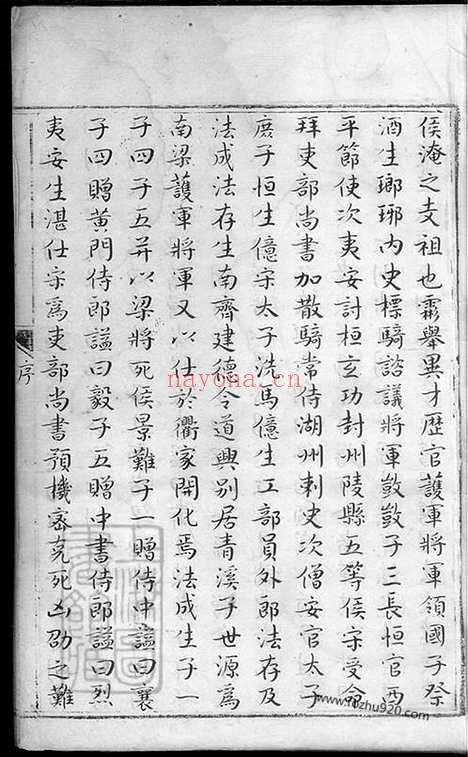 侯淹之支祖也霦舉異才歷官護軍將軍領國子祭
酒生瑯琊內史標騎諮議將軍敳敳子三長恒官西
平節使次夷安討桓玄功封州陵縣五等侯宋受命
拜吏部尚書加散騎常侍湖州刺史次僧安官太子
庶子恒生億宋太子洗馬億生工部員外郎法存及
法成法存生南齊建德令道興別居青溪子世源爲
南梁護軍將軍又以仕於衢家開化焉法成生子一
子四子五并以梁將死侯景難子一贈侍中謚曰襄
子四贈黃門侍郎謚曰毅子五贈中書侍郎謚曰烈
夷安生湛仕宋爲吏部尚書預機密克死凶劭之難
序
nayona.cn
www.guzhu920.com